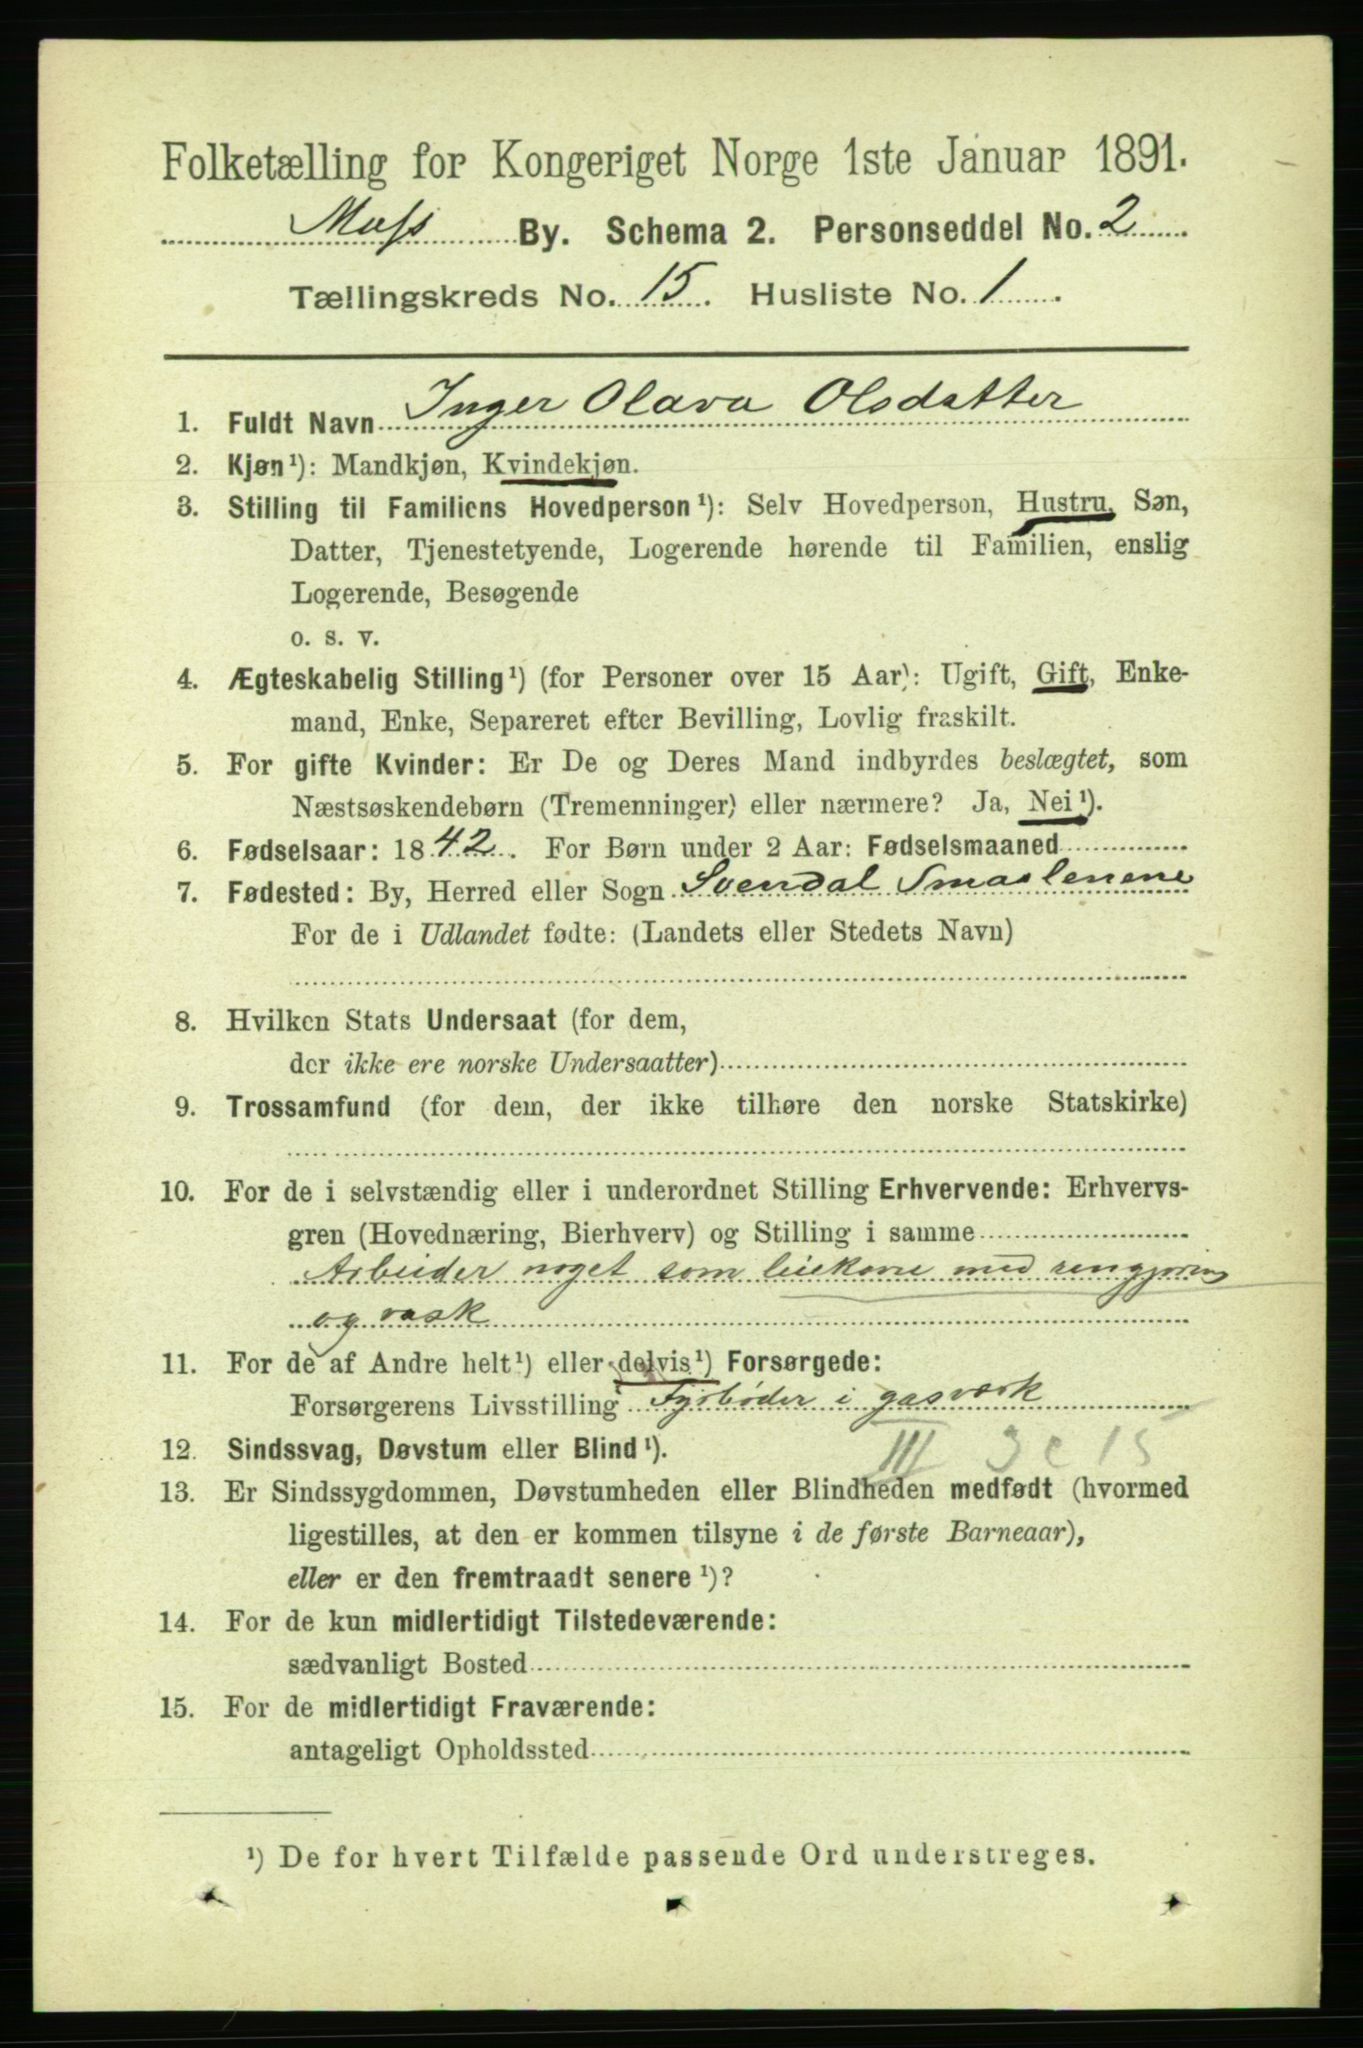 Folketælling for Kongeriget Norge 1ste Januar 1891.
Moss By. Schema 2. Personseddel No. 2
Tællingskreds No. 15. Husliste No. 1.
1. Fuldt Navn Inger Olava Olsdatter
2. Kjøn¹): Mandkjøn, Kvindekjøn.
3. Stilling til Familiens Hovedperson¹): Selv Hovedperson, Hustru, Søn,
Datter, Tjenestetyende, Logerende hørende til Familien, enslig
Logerende, Besøgende
o. s. v.
4. Ægteskabelig Stilling¹) (for Personer over 15 Aar): Ugift, Gift, Enke-
mand, Enke, Separeret efter Bevilling, Lovlig fraskilt.
5. For gifte Kvinder: Er De og Deres Mand indbyrdes beslægtet, som
Næstsøskendebørn (Tremenninger) eller nærmere? Ja, Nei¹).
6. Fødselsaar: 1842. For Børn under 2 Aar: Fødselsmaaned
7. Fødested: By, Herred eller Sogn Svendal Smaalenene
For de i Udlandet fødte: (Landets eller Stedets Navn)
8. Hvilken Stats Undersaat (for dem,
der ikke ere norske Undersaatter)
9. Trossamfund (for dem, der ikke tilhøre den norske Statskirke)
10. For de i selvstændig eller i underordnet Stilling Erhvervende: Erhvervs-
gren (Hovednæring, Bierhverv) og Stilling i samme
Arbeider noget som leiekone med rengjøring
og vask
11. For de af Andre helt¹) eller delvis¹) Forsørgede:
Forsørgerens Livsstilling Fyrbøder i gasværk
III 3 c 15
12. Sindssvag, Døvstum eller Blind¹).
13. Er Sindssygdommen, Døvstumheden eller Blindheden medfødt (hvormed
ligestilles, at den er kommen tilsyne i de første Barneaar),
eller er den fremtraadt senere¹)?
14. For de kun midlertidigt Tilstedeværende:
sædvanligt Bosted
15. For de midlertidigt Fraværende:
antageligt Opholdssted
¹) De for hvert Tilfælde passende Ord understreges.